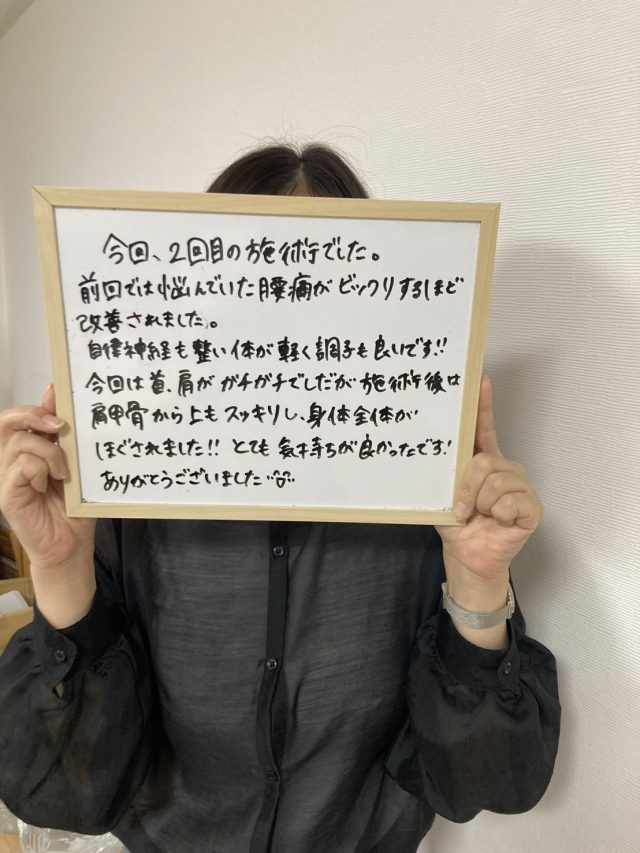 今回、2回目の施術でした。
前回では悩んでいた腰痛がビックリするほど
改善されました。
自律神経も整い体が軽く調子も良いです!!
今回は首、肩がガチガチでしだが施術後は
肩甲骨から上もスッキリし、身体全体が
ほぐされました!! とても気持ちが良かったです!
ありがとうございました